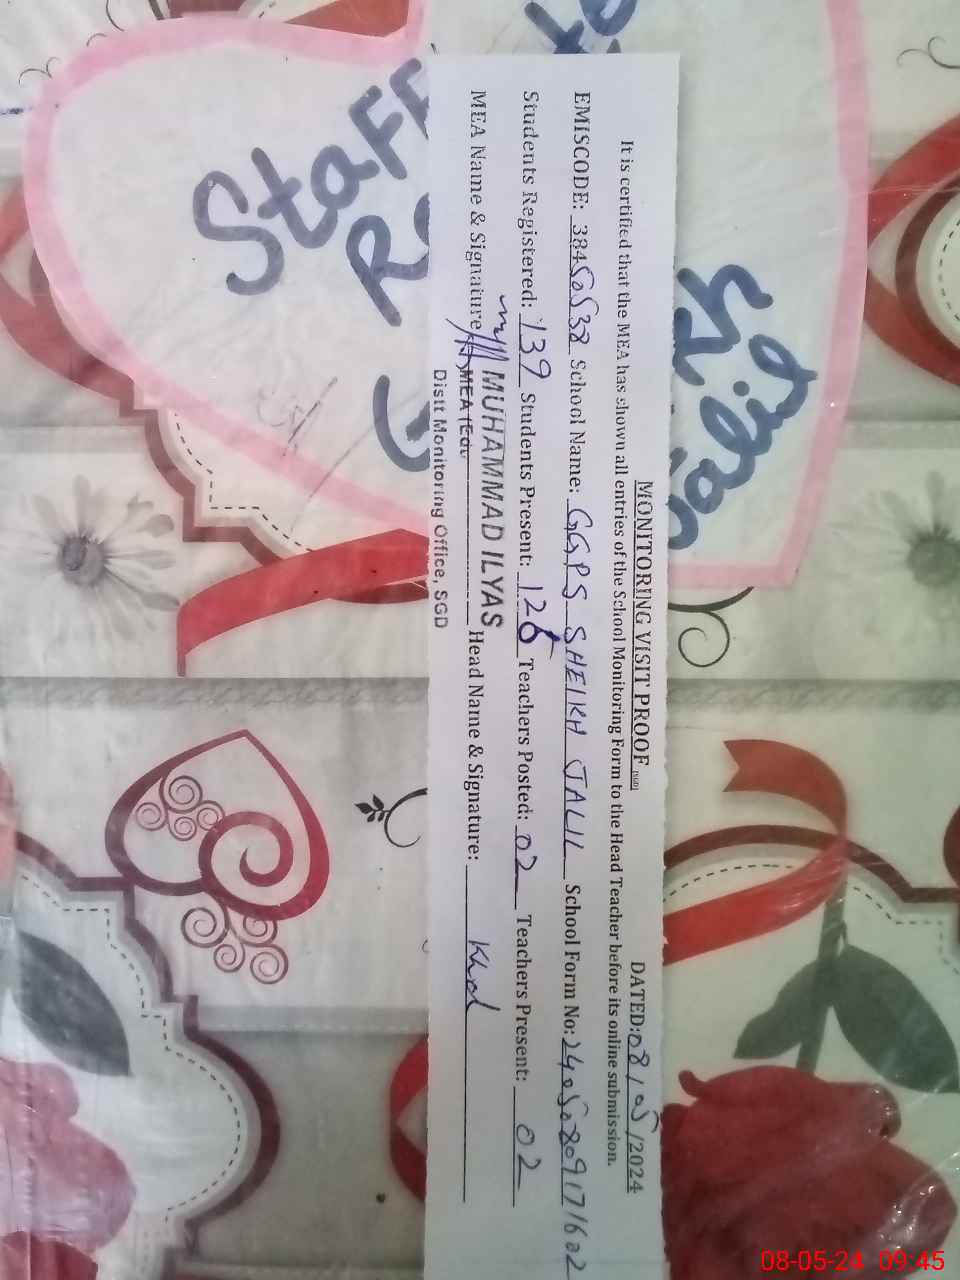 MONITORING VISIT PROOF
DATED: 08/05/2024
It is certified that the MEA has shown all entries of the School Monitoring Form to the Head Teacher before its online submission.
EMISCODE: 38450538 School Name: GGPS SHEIKH JALIL School Form No: 24050809171602
Students Registered: 139 Students Present: 126 Teachers Posted: 02 Teachers Present: 02
MEA Name & Signature MUHAMMAD ILYAS Head Name & Signature:
MEA (Edu
Distt Monitoring Office, SGD
Staff
08-05-24 09:45